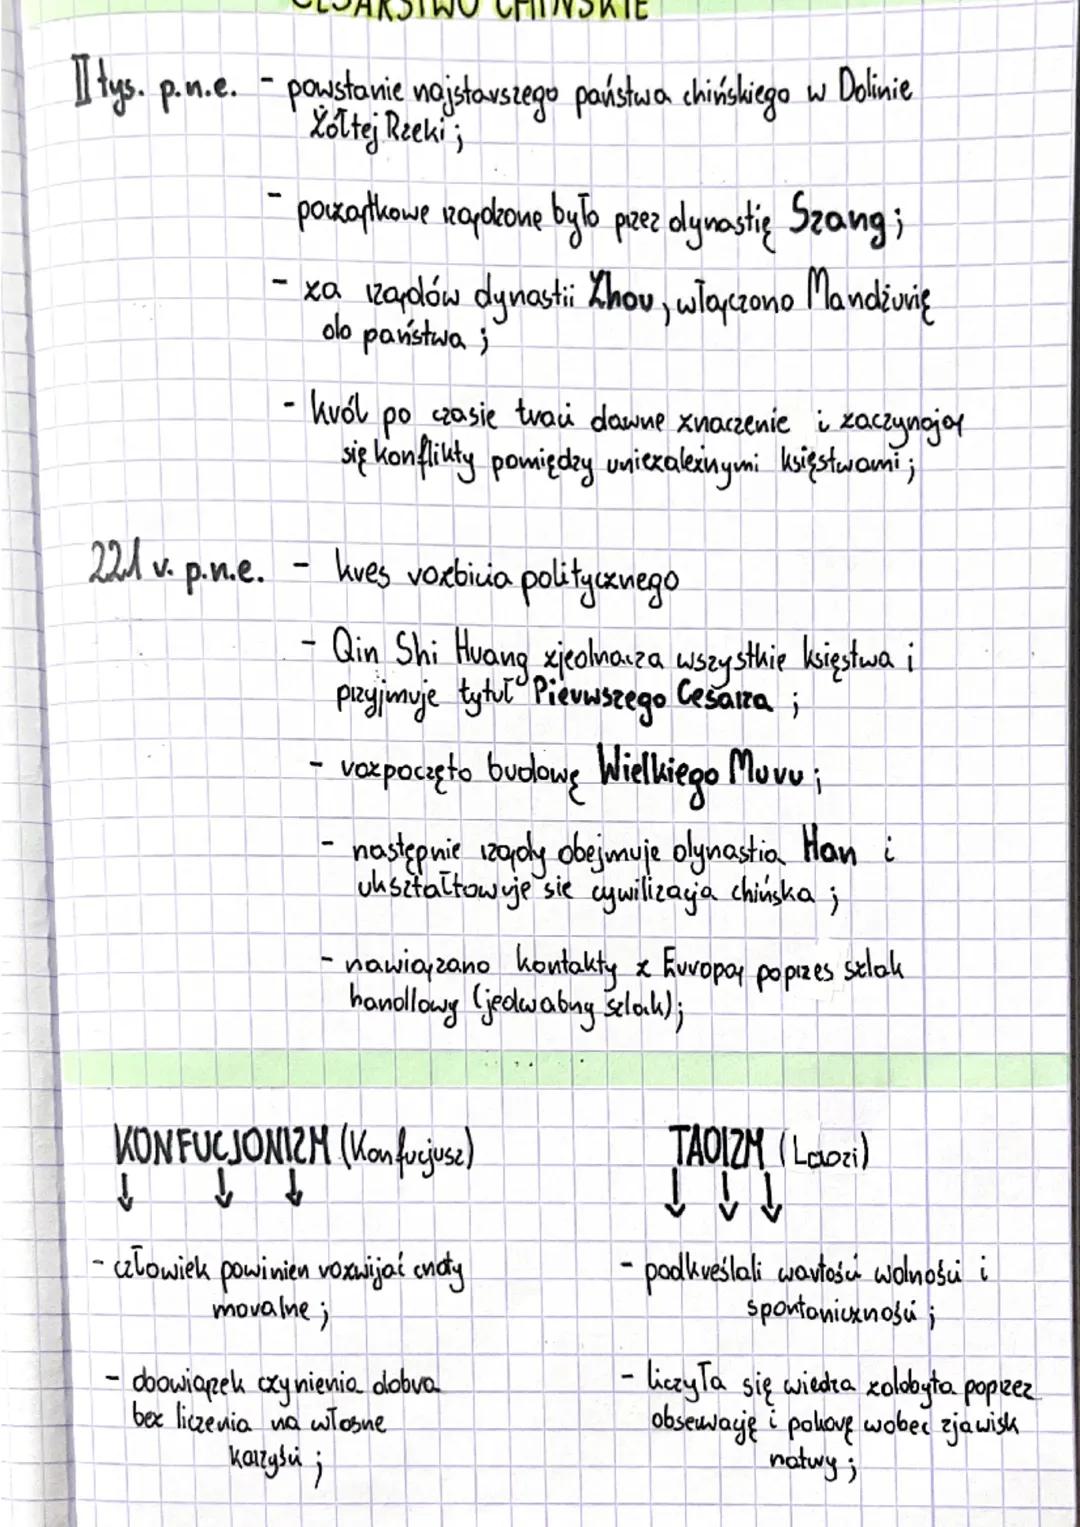 CESARSTWO CHIŃSKIE
II tys. p.n.e. - powstanie najstarszego państwa chińskiego w Dolinie
Żółtej Rzeki ;
- początkowe rządzone było przez dynastię Szang ;
- za rządów dynastii Zhou, włączono Mandżurię
do państwa ;
- król po czasie traci dawne znaczenie i zaczynają
się konflikty pomiędzy uniezależnymi księstwami ;
221 r. p.n.e. - kres rozbicia politycznego
- Qin Shi Huang zjednacza wszystkie księstwa i
przyjmuje tytuł Pierwszego Cesarza ;
- rozpoczęto budowę Wielkiego Muru ;
- następnie rządy obejmuje dynastia Han i
ukształtowuje sie cywilizacja chińska ;
- nawiązano kontakty z Europą poprzes szlak
handlowy (jedwabny szlak) ;
KONFUCJONIZM (Konfucjusz) TAOIZM (Laozi)
↓ ↓ ↓ ↓ ↓ ↓
- człowiek powinien rozwijać cnoty - podkreślali wartości wolności i
moralne ; spontaniczności ;
- obowiązek czynienia dobra - liczyła się wiedza zdobyta poprzez
bez liczenia na własne obserwację i pokorę wobec zjawisk
korzyści ; natury ;